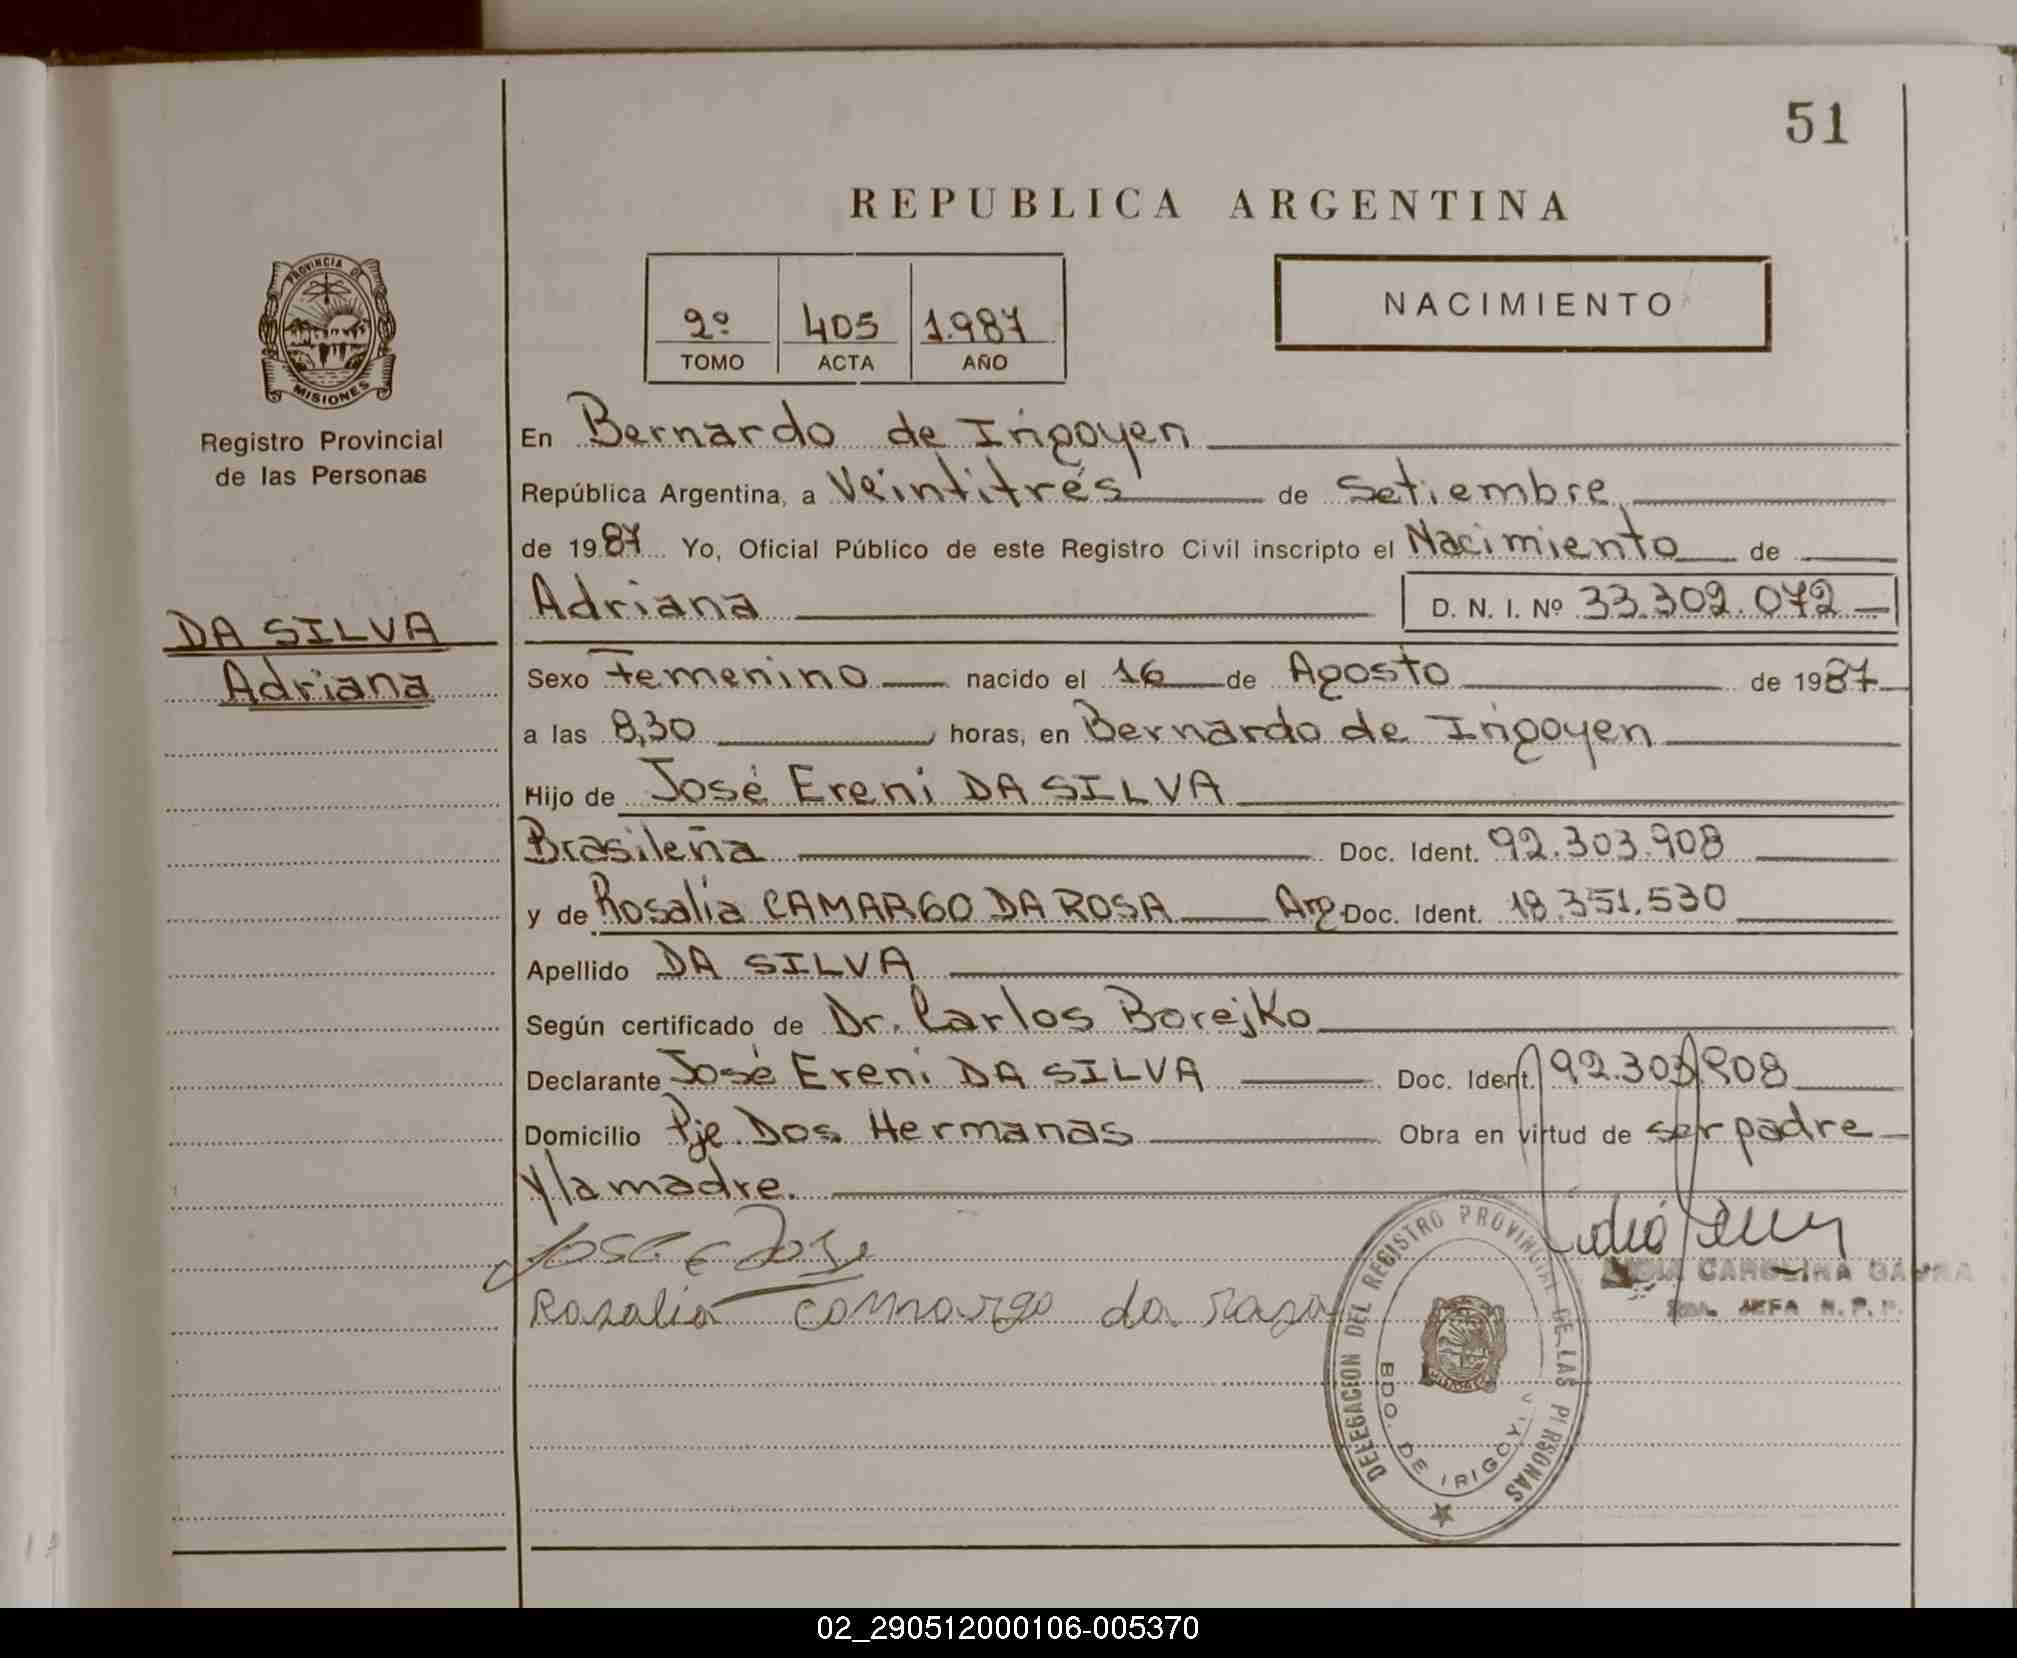 51
REPUBLICA ARGENTINA
PROVINCIA DE
MISIONES
2º 405 1.987
TOMO ACTA AÑO
NACIMIENTO
Registro Provincial
de las Personas
DA SILVA
Adriana
En Bernardo de Irigoyen
República Argentina, a Veintitrés de Setiembre
de 1987 Yo, Oficial Público de este Registro Civil inscripto el Nacimiento de
Adriana D. N. I. Nº 33.302.072
Sexo Femenino nacido el 16 de Agosto de 1987
a las 8,30 horas, en Bernardo de Irigoyen
Hijo de José Ereni DA SILVA
Brasileña Doc. Ident. 92.303.908
y de Rosalia CAMARGO DA ROSA Arg. Doc. Ident. 18.351.530
Apellido DA SILVA
Según certificado de Dr. Carlos Borejko
Declarante José Ereni DA SILVA Doc. Ident. 92.303.908
Domicilio Pje. Dos Hermanas Obra en virtud de ser padre
y la madre.
Rosalia camargo da rosa
CAROLINA
JEFA R. P. P.
DELEGACION DEL REGISTRO PROVINCIAL DE LAS PERSONAS
BDO. DE IRIGOYEN
MISIONES
02_290512000106-005370